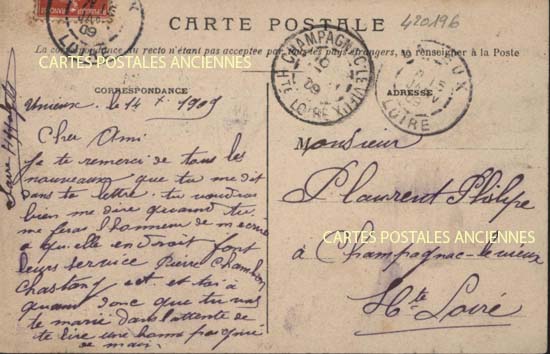 CARTE POSTALE
420196
La correspondance au recto n'étant pas acceptée par tous les pays étrangers, se renseigner à la Poste
CORRESPONDANCE
ADRESSE
CHAMPAGNAC-LE-VIEUX
Hte LOIRE
09
LOIRE
CARTES POSTALES ANCIENNES
Unieux le 14 1909
Cher Ami
Je te remerci de tous les
nouveaux que tu me dit
dans ta lettre. tu voudras
bien me dire quand tu
me feras l'honneur de
a quelle endroit font
leurs service Pierre Chambon
Chastang et et toi à
quand donc que tu vas
te marié dans l'attente de
te lire une bonne poignée
de main.
Monsieur
P Laurent Philipe
à Champagnac-le-vieux
Hte Loire
CARTES POSTALES ANCIENNES
CARTES POSTALES ANCIENNES